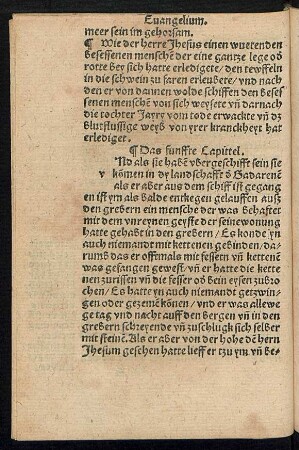 Euangelium.
meer sein im gehorsam.
¶ Wie der herre Jhesus einen wuetenden
besessenen mensche͂ der eine gantze lege od̕
rotte bey sich hatte erledigete, den tewffeln
in die schwein zu faren erleubete, vnd nach
den er von dannen wolde schiffen den beses
senen mensche͂ von sich weysete vn͂ darnach
die tochter Jayry vom tode erwackte vn͂ dz
blutflussige weyb von yrer kranckheyt hat
erlediget.
¶ Das funffte Capittel.
Nd als sie habe͂ vbergeschifft sein sie
v kömen in dy landschafft d̕ Gadarene͂
als er aber aus dem schiff ist gegang
en ist ym als balde entkegen gelauffen ausz
den grebern ein mensche der was behaftet
mit dem vnreynen geyste der seine wonung
hatte gehabt in den grebern / Es konde yn
auch niemandt mit kettenen gebinden / da-
rumb das er offtmals mit fessern vn͂ kettene͂
was gefangen gewest / vn͂ er hatte die kette
nen zurissen vn͂ die fesser od̕ beineysen zubro
chen / Es hatte yn auch niemandt getzwin-
gen oder getzeme͂ köne͂ / vnd er was allewe
ge tag vnd nacht auff den bergen vn͂ in den
grebern schreyende vn͂ zuschlugk sich selber
mit steine͂. Als er aber von der hohe de͂ hern
Jhesum gesehen hatte lieff er tzu ym vn͂ be-